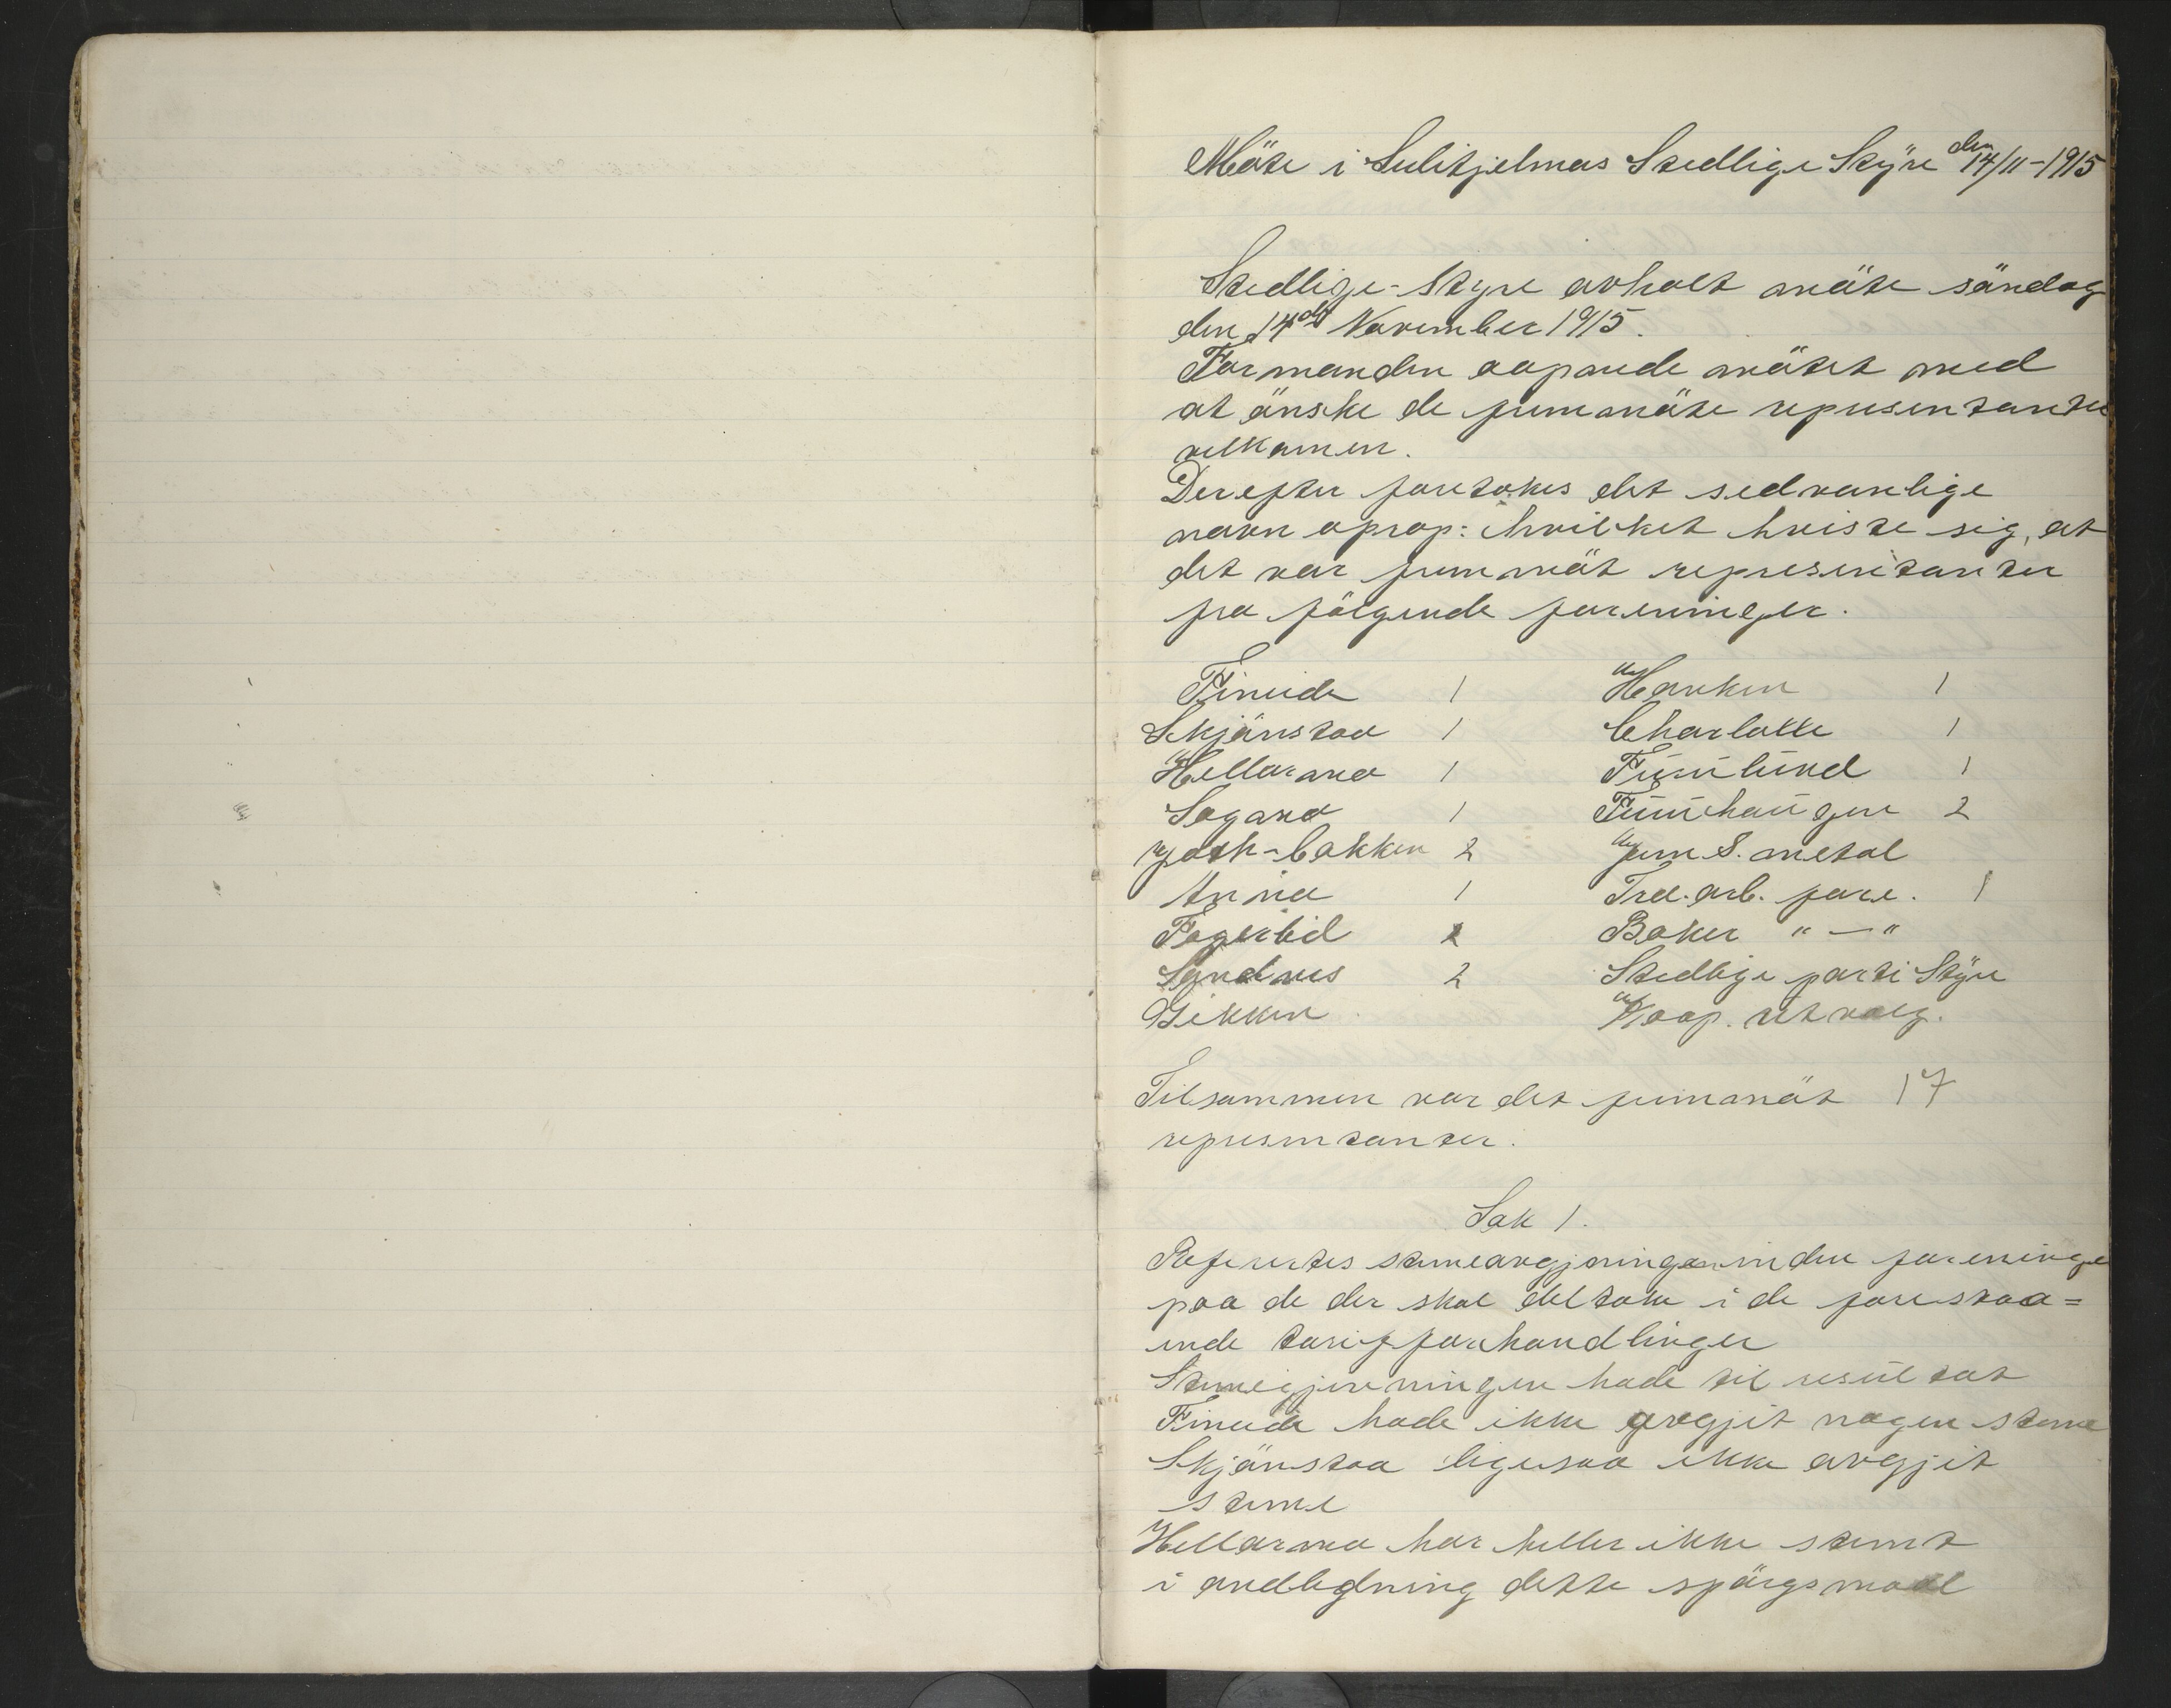 Möte i Sulitjelmas Stedlige Styre den 14/11-1915
Stedlige-Styre avholt möte söndag
den 14de November 1915.
Formanden aapnede mötet med
at önske de fremmöte representanter
velkomen.
Derefter foretokes det sedvanlige
navn oprop: hvilket hviste sig, at
det var fremmöt representanter
fra fölgende foreninger.
Fineide 1 Hanken 1
Skjönstaa 1 Charlotte 1
Hellarmo 1 Furulund 1
Sagmo 1 Furuhaugen 2
Jakobsbakken 2 Jern S. metal
Anna 1 Tra. arb. fore. 1
Fagerlid 2 Baker " — "
Sandnes 2 Stedlige parti Styre
Gikken Koop. utvalg.
Tilsammen var det fremmöt 17
representanter.
Sak 1.
Refertes stemeavgjivningen inden foreninge
paa de der skal deltake i de forestaa=
ende tarifforhandlinger
Stemegjivningen hade til resultat
Fineide hade ikke avgjit nogen steme
Skjönstaa ligesaa ikke avgjit
steme
Hellarmo har heller ikke stemt
i andledning dette spörgsmaal